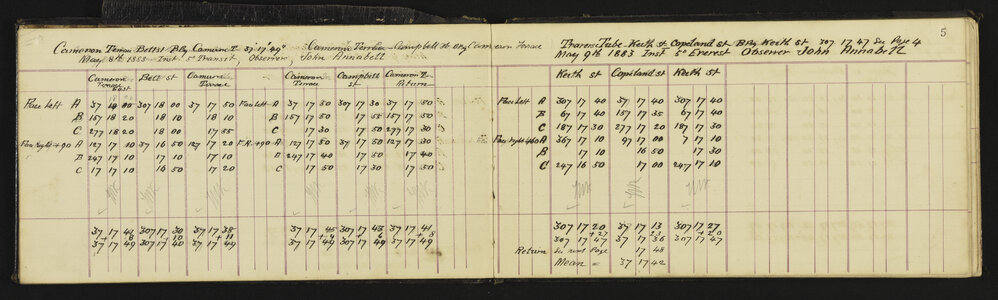 5
Cameron Terrace Belt St Brg Cameron T 37° 17' 49"
May 8th 1883 Inst 5" Transit, Observer, John Annabell
Cameron Terrace East Belt St Cameron Terrace
Face Left A 37 18 00 307 18 00 37 17 50
B 157 18 20 18 10 18 10
C 277 18 20 18 00 17 55
Face Right +90 A 127 17 10 37 16 50 127 17 20
B 247 17 10 17 10 17 10
C 17 17 10 16 50 17 20
37 17 41 307 17 30 37 17 38
+ 8 + 10 + 11
37 17 49 307 17 40 37 17 49
Cameron Terrace - Campbell St Brg Cameron Terrace
Cameron Terrace Campbell St Cameron Tr Return
Face Left A 37 17 50 307 17 30 37 17 50
B 157 17 50 17 55 157 17 50
C 17 30 17 50 277 17 30
F.R. +90 A 127 17 50 37 17 50 127 17 30
B 247 17 40 17 50 17 40
C 17 30 17 30 17 50
37 17 45 307 17 43 37 17 41
+ 4 + 6 + 8
37 17 49 307 17 49 37 17 49
Traverse Tube - Keith St Copeland St Brg Keith St 307 17 47 See Page 4
May 9th 1883 Inst 5" Everest Observer John Annabell
Keith St Copeland St Keith St
Face Left A 307 17 40 37 17 40 307 17 40
B 67 17 40 157 17 35 67 17 40
C 187 17 30 277 17 20 187 17 30
Face Right +60 A 367 17 10 97 17 00 7 17 10
B 17 10 16 50 17 30
C 247 16 50 17 00 247 17 10
307 17 20 37 17 13 307 17 27
+ 27 23 + 20
307 17 47 37 17 36 307 17 47
Return See next Page 17 48
Mean = 37 17 42